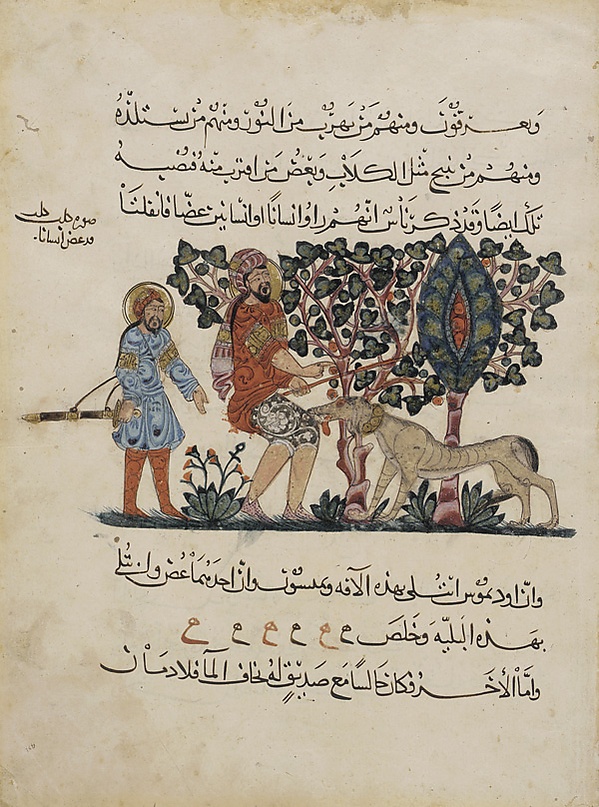 ويعرقون ومنهم من يهرب من النور ومنهم من يستلذه
ومنهم من ينبح مثل الكلاب ويعض من اقترب منه فيصيبه
تلك ايضا وقد ذكر ناس انهم راوا انسانا او انسانين عضا فانفلتا
صورة كلب كلب
قد عض انسانا
وان اوديموس ابتلى بهذه الافه وان احدهما عض وابتلي
بهذه البلية وخلص ه ه ه ه ه ه
واما الاخر فكان جالسا مع صديق له يخاف الما